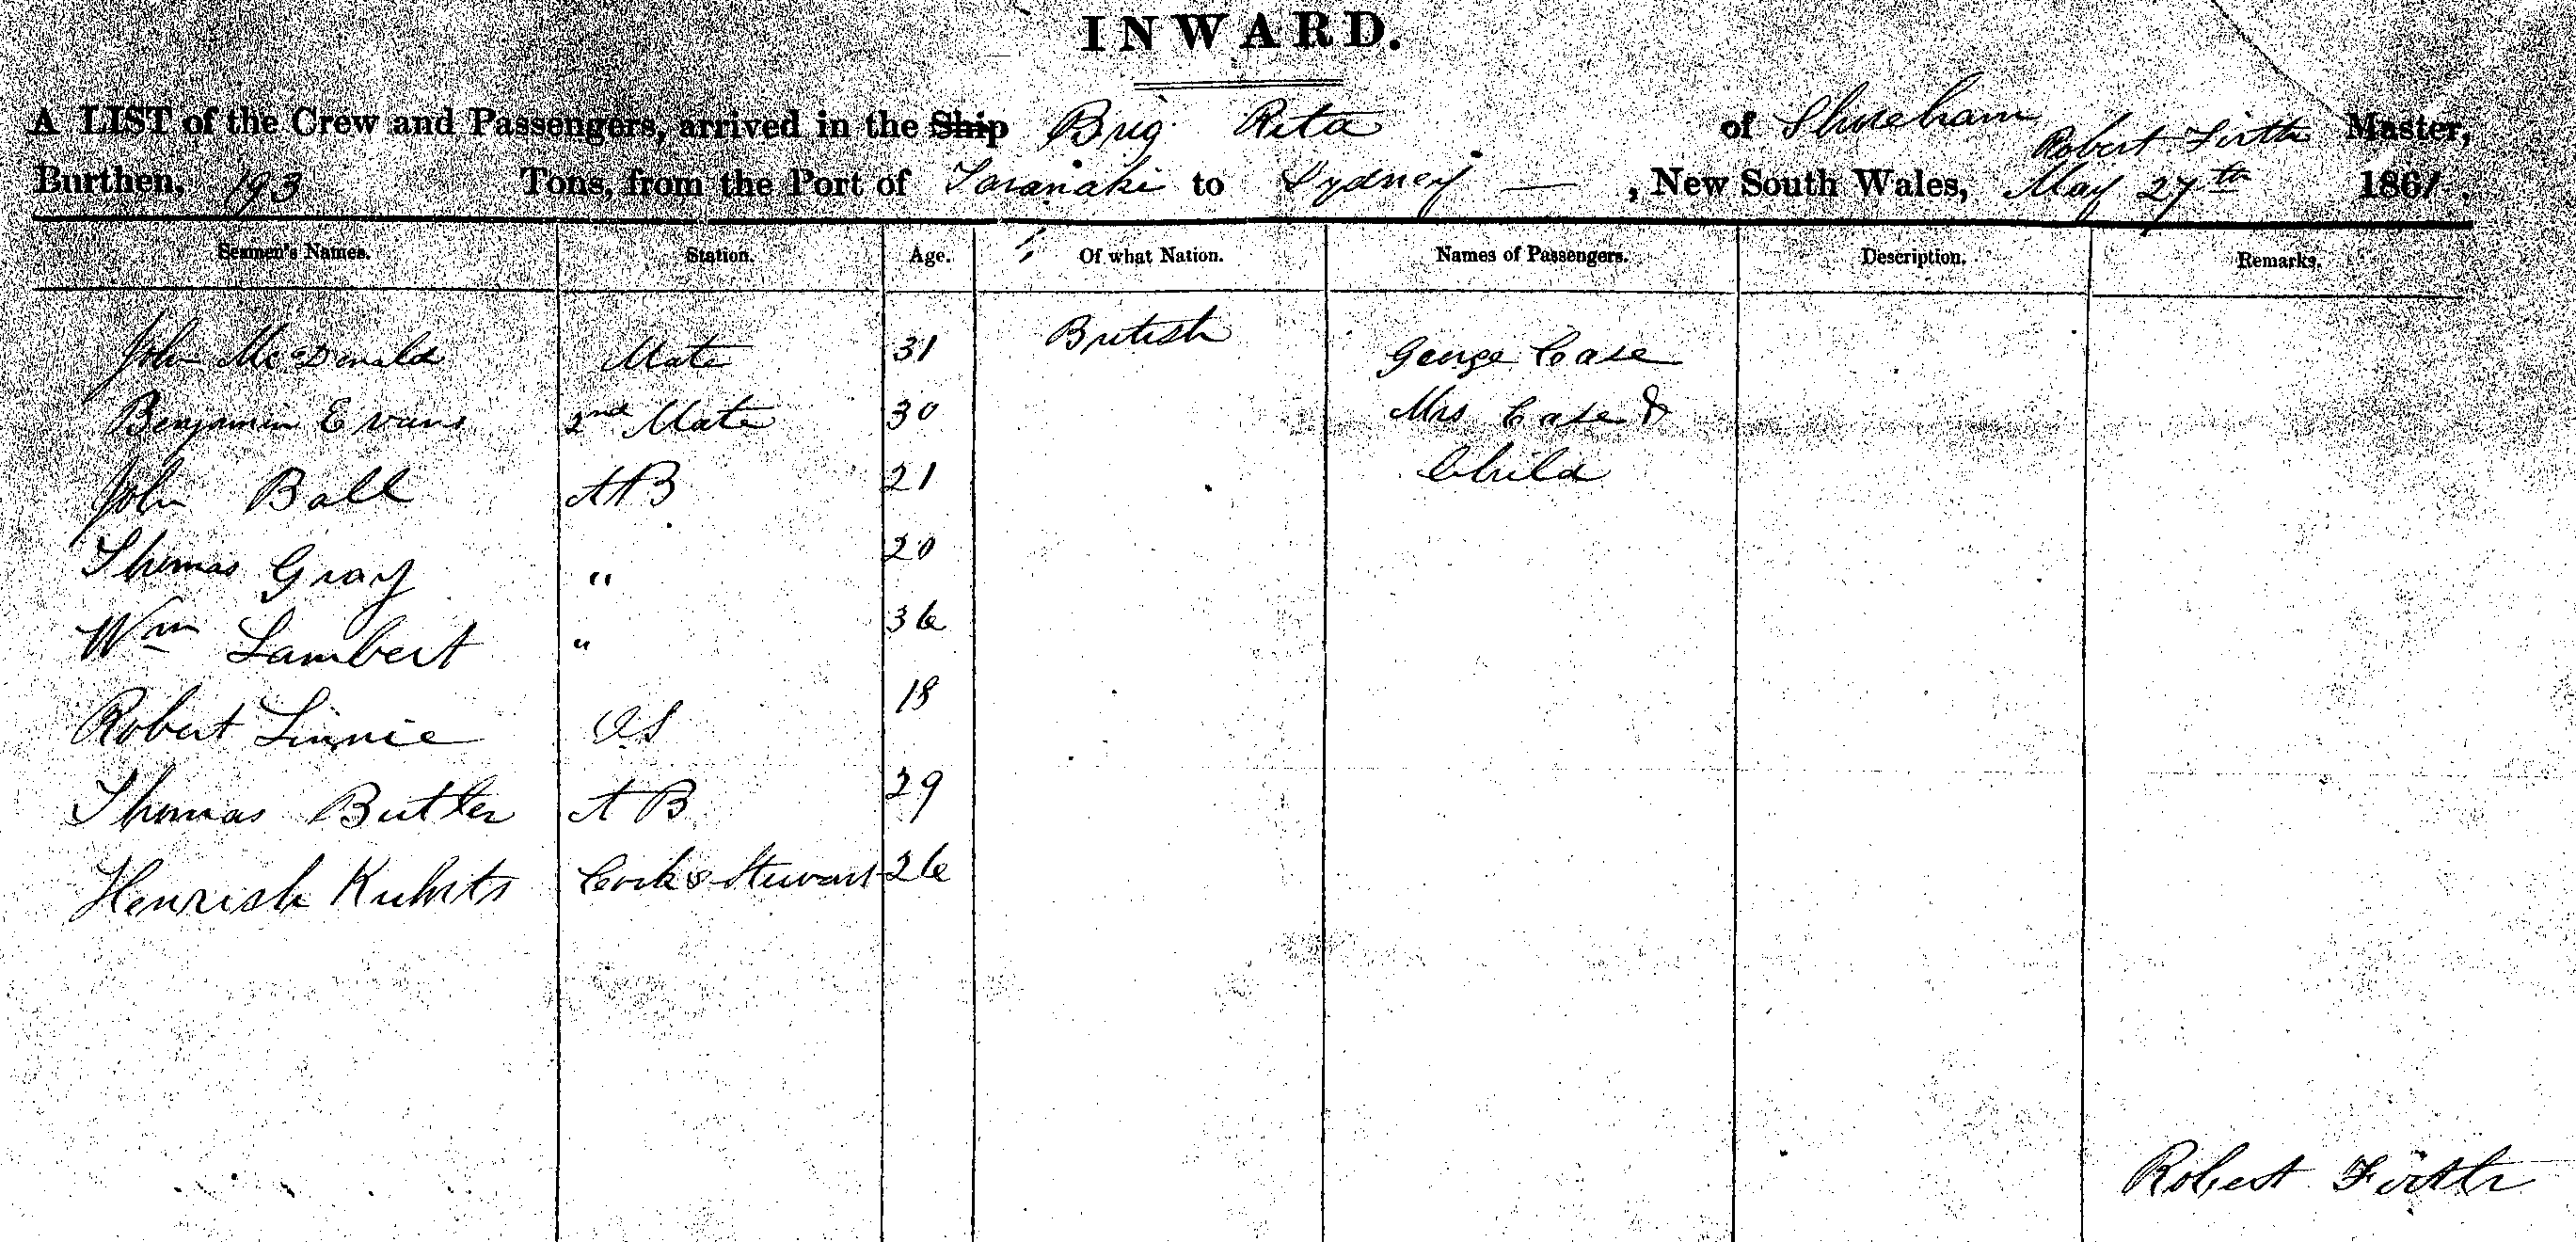 INWARD.
A LIST of the Crew and Passengers, arrived in the Ship Brig Rita of Shoreham Robert Firth Master,
Burthen, 193 Tons, from the Port of Taranaki to Sydney — , New South Wales, May 27th 1861.
Seamen's Names. Station. Age. Of what Nation. Names of Passengers. Description. Remarks.
John McDonald Mate 31 British George Case
Benjamin Evans 2nd Mate 30 Mrs Case &
John Ball AB 21 Child
Thomas Gray " 20
Wm Lambert " 36
Robert Linnie OS 18
Thomas Butler AB 29
Henrish Kuhrts Cook & Stewart 26
Robert Firth